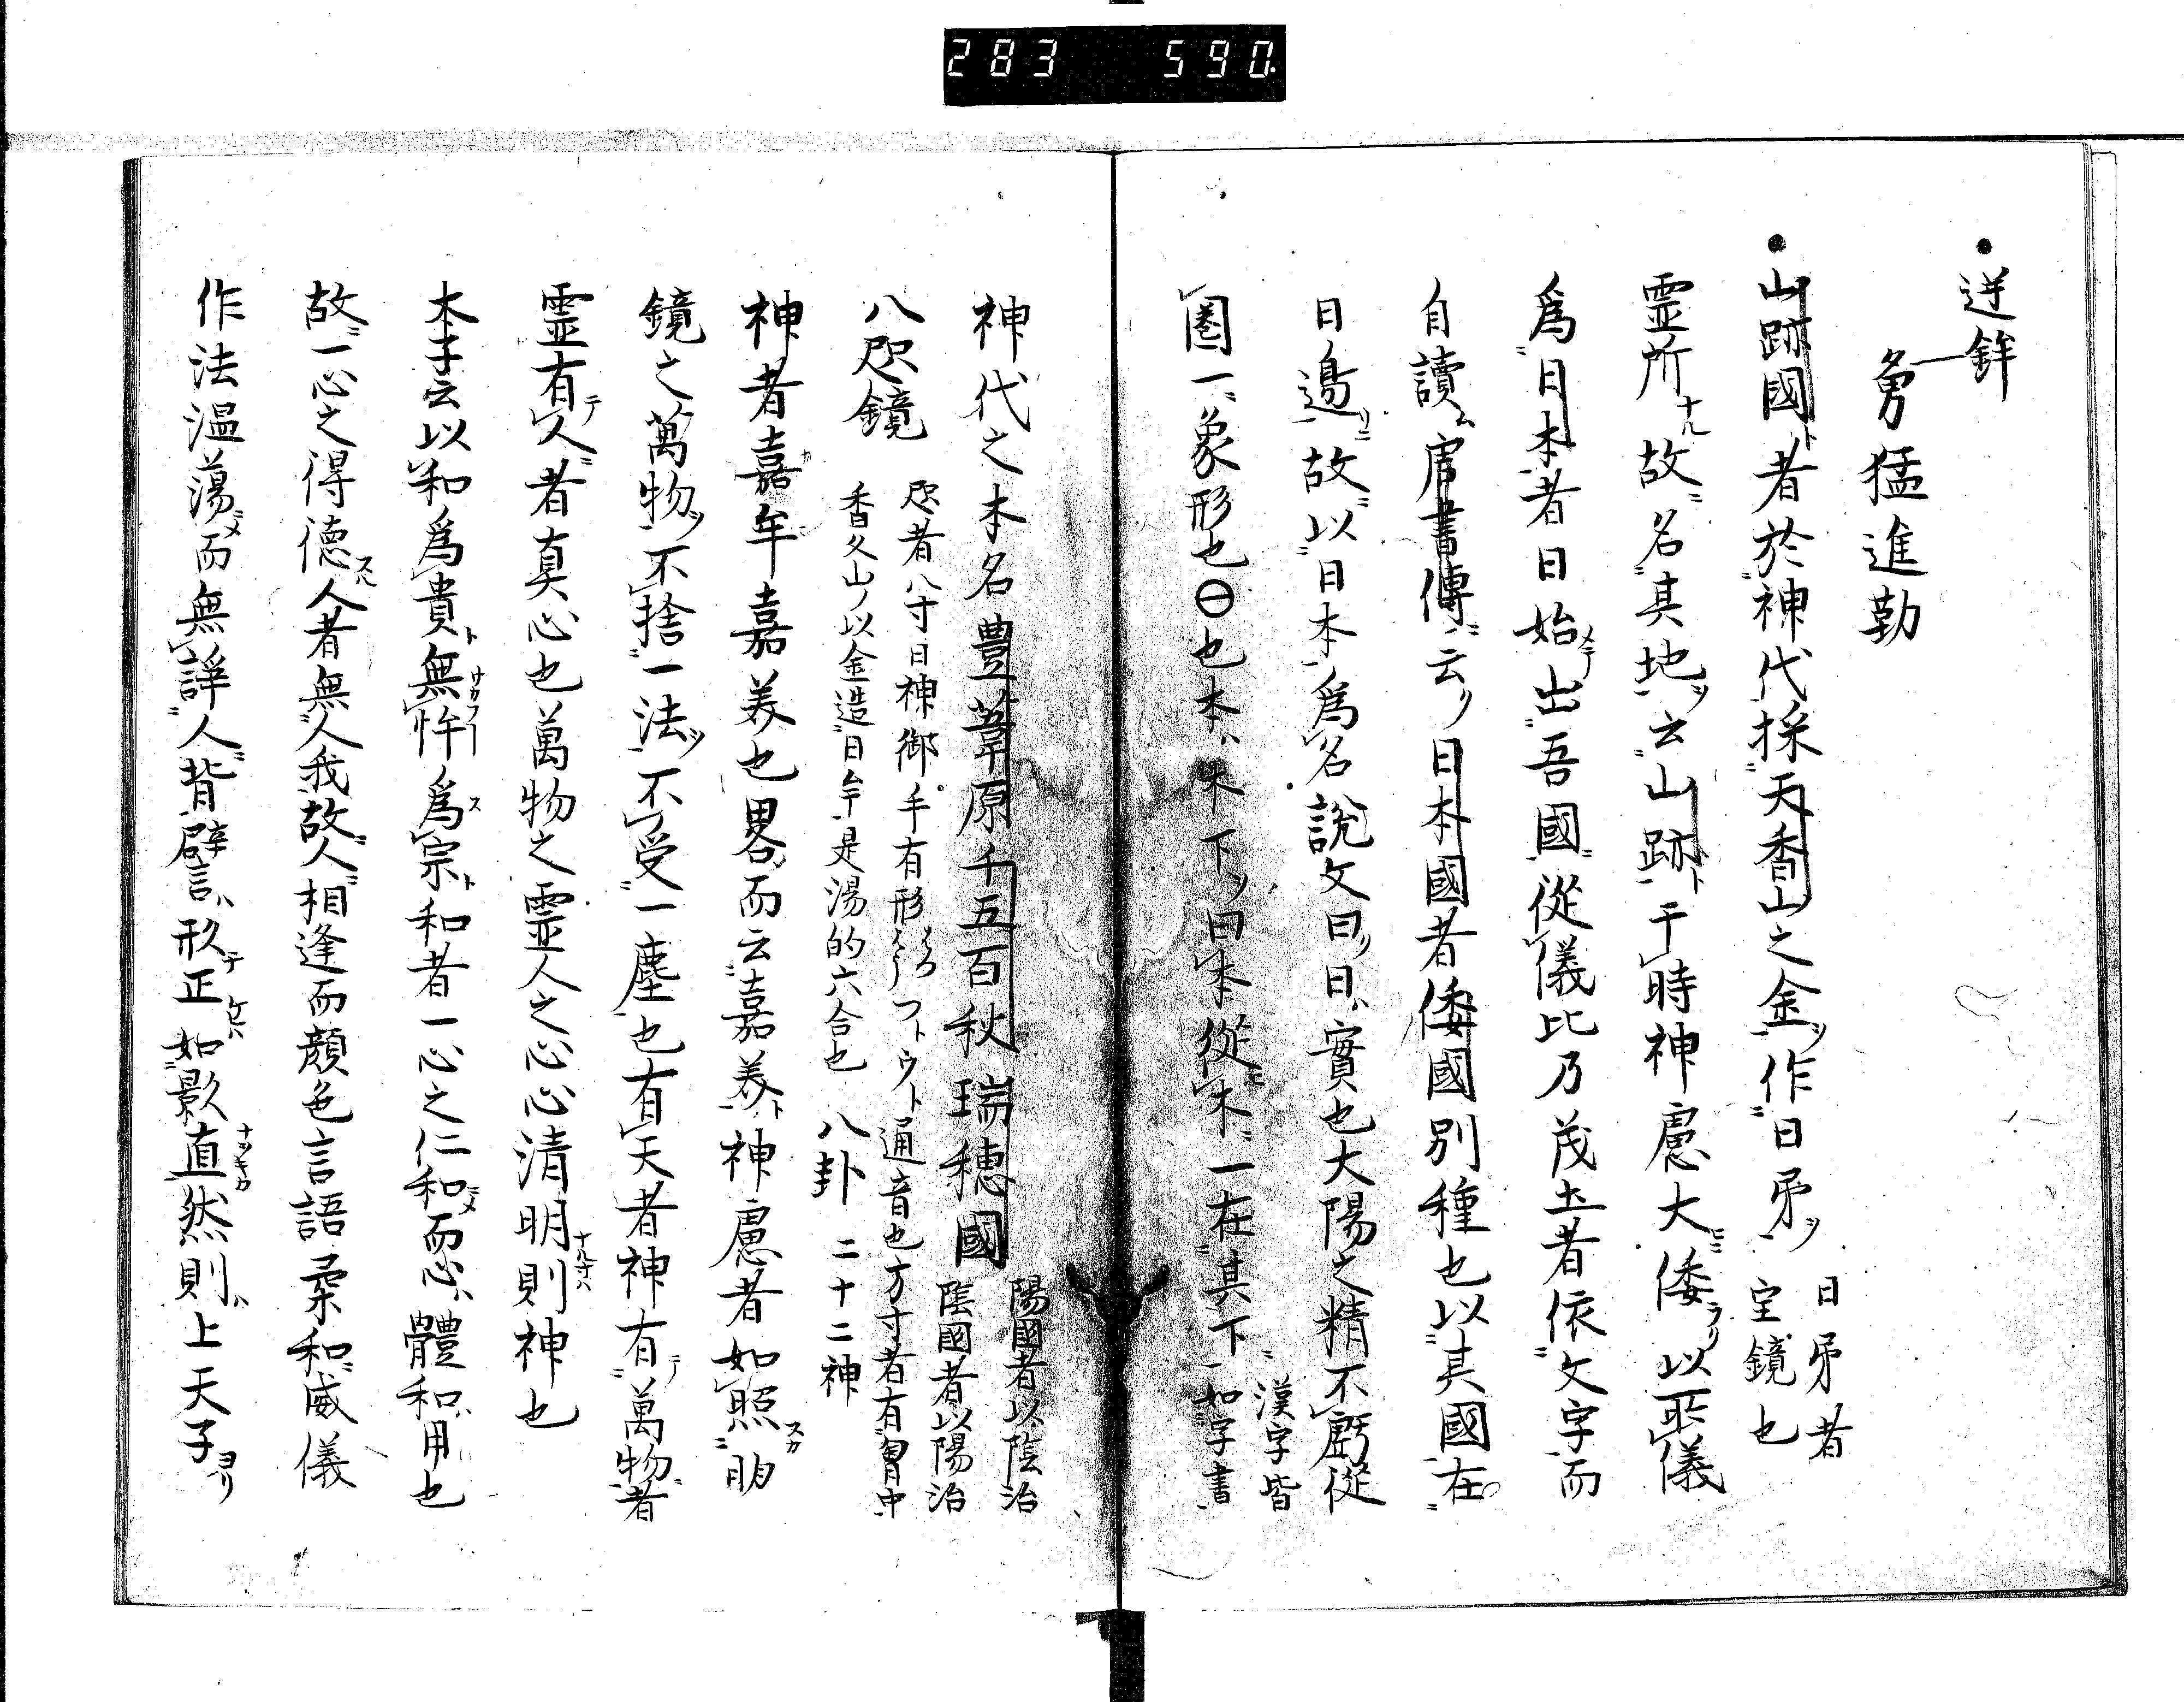 283 590
逆鉾
勇猛進勤
山跡國ト者於神代採天香山之金ヲ作日矛ヲ 日矛者宝鏡也
霊所ナル故ニ名其地ヲ云山跡ト于時神慮大ニ倭ラリ以正儀
為日本者日始メテ出吾國従儀比乃茂土者依文字而
自讀唐書傳ニ云ク日本國者倭國別種也以其國在
日邉リニ故ニ以日本為名説文曰ク日ハ實也大陽之精不虧従
圏一象形也㊀也本ハ木下ヲ曰本従木一在其下 漢字皆如字書
神代之本名豊葦原千五百秋瑞穂國 陽國者以陰治陰國者以陽治
八咫鏡 咫者八寸日神御手有形 フトウト通音也方寸者有胷中
香久山ノ以金造日牟是湯的六合也 八卦 二十二神
神者嘉牟嘉美也畧而云嘉美ト神慮者如照明
鏡之萬物ヲ不捨一法ヲ不受一塵也有天者神有テ萬物者
霊有テ人者真心也萬物之霊人之心心清明ナルトキハ則神也
本子云以和為貴ト無忤為ス宗ト和者一心之仁和而心ハ體和ハ用也
故一心之得徳人者無人我故人相逢而顔色言語柔和威儀
作法温蕩而無諍人背譬ハ形テ正ケレハ如影直然則ハ上天子ヨリ